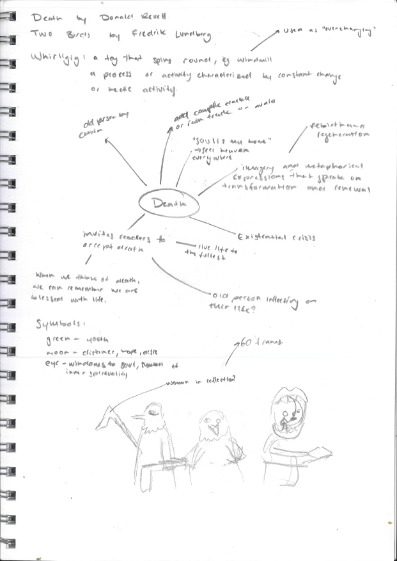 Death by Donald Revell
Two Birds by Fredrik Lundberg
used as "everchanging"
Whirligig: a toy that spins round, eg windmill
a process or activity characterised by constant change
or hectic activity
old person by
add couple
or calm
"Soul is my home"
→ sees heaven
everywhere
rebirth and
regeneration
imagery and metaphorical
expressions that speak on
transformation and renewal
Death
invites readers to
accept death
live life to
the fullest
Existential crisis
When we think of death,
we can remember we are
blessed with life.
old person reflecting on
their life?
Symbols:
green - youth
moon - distance, hope,
eye - windows to soul, of
inner spirituality
60's
woman in reflection?